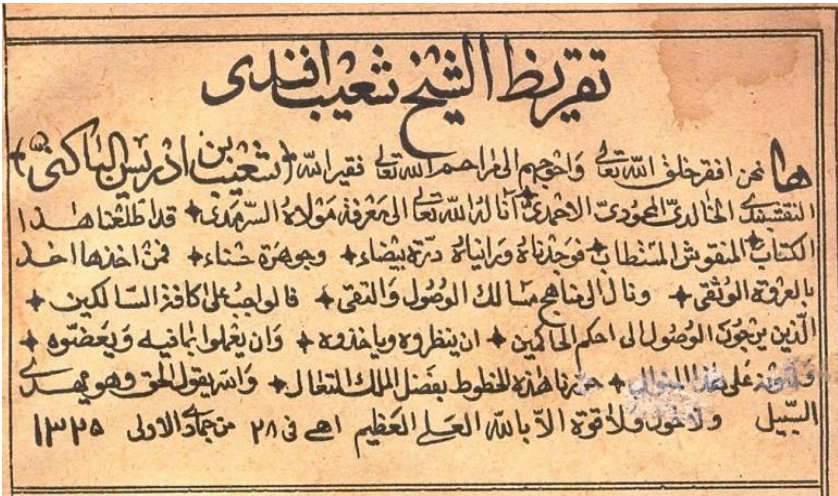 تقريظ الشيخ شعيب افندى
ها نحن افقر خلق الله تعالى وَاحْوجهم الى مراحم الله تعالى فقير الله ﴿شعَيب بن ادريس الباكنى﴾
النقشبندى الخالدىّ المحمودىّ الاحمدىّ اَنَالهُ الله تعَالى الى مَعْرفة مَوْلاهُ السّرمَدى ✦ قد اطّلعْنا هٰذا
الكتابَ المنقوش المسْتطاب ✦ فوجَدْناهُ ورايناهُ درّة بيضاء ✦ وجوهَرَة حسْناء ✦ فمنْ اخذها اخذ
بالعروة الوُثقى ✦ ونال الى مناهج مسَالك الوُصُول وَالتقى ✦ فالواجبُ على كافة السّالكين ✦
الّذين يرْجُونَ الوصُول الى احكم الحاكمين ✦ ان ينظروه وياخذوه ✦ وَان يعْملوا بمَا فيه وَيعَضّوه ✦
على ✦ حرّرنا هٰذه الخطوط بفَضل الملك المتعَال ✦ وَالله يقول الحق وهو يهْدى
السّبيل ولاحَول ولا قوّة الاّ بالله العَلى العَظيم اهى فى ٢٨ من جمادَ الاولى ١٣٢٥